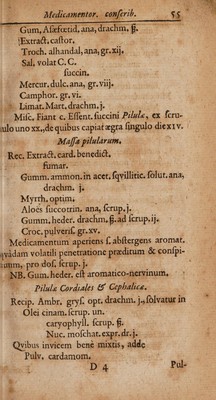 Medicamentor. conscrib. 55
Gum, Asæfœtid, ana, drachm, ß.
Extract, castor,
Troch. alhandal, ana, gr. xij.
Sal. volat C. C.
succin.
Mercur. dulc. ana, gr. viij.
Camphor. gr. vi.
Limat. Mart. drachm. j.
Misc. Fiant c. Essent. succini Pilulæ, ex scru-
pulo uno xx., de quibus capiat ægra singulo die xiv.
Massa pilularum.
Rec. Extract. card. benedict.
fumar.
Gumm. ammon. in acet. sqvillitic. solut. ana,
drachm. j.
Myrrh. optim.
Aloës succotrin. ana, scrup. j.
Gumm. heder. drachm. ß. ad scrup. ij.
Croc. pulvers. gr. xv.
Medicamentum aperiens s. abstergens aromat.
qvâdam volatili penetratione præditum & conspi-
cuum, pro dos. scrup. j.
NB. Gum. heder. est aromatico-nervinum.
Pilula Cordiales & Cephalicæ.
Recip. Ambr. grys. opt. drachm. j., solvatur in
Olei cinam. scrup. un.
caryophyll. scrup. ß.
Nuc. moschat. expr. dr. j.
Qvibus invicem bene mixtis, adde
Pulv. cardamom.
D 4 Pul-